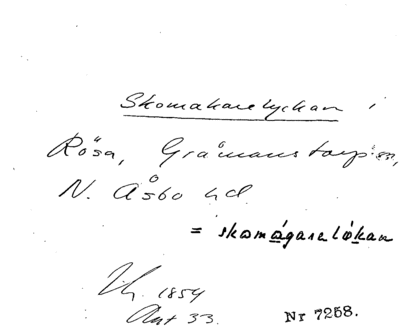 Skomakarelyckan i
Rösa, Gråmanstorp sn,
N. Åsbo hd.
= skomágaralö́kan
1854
Ant 33.
Nr 7258.